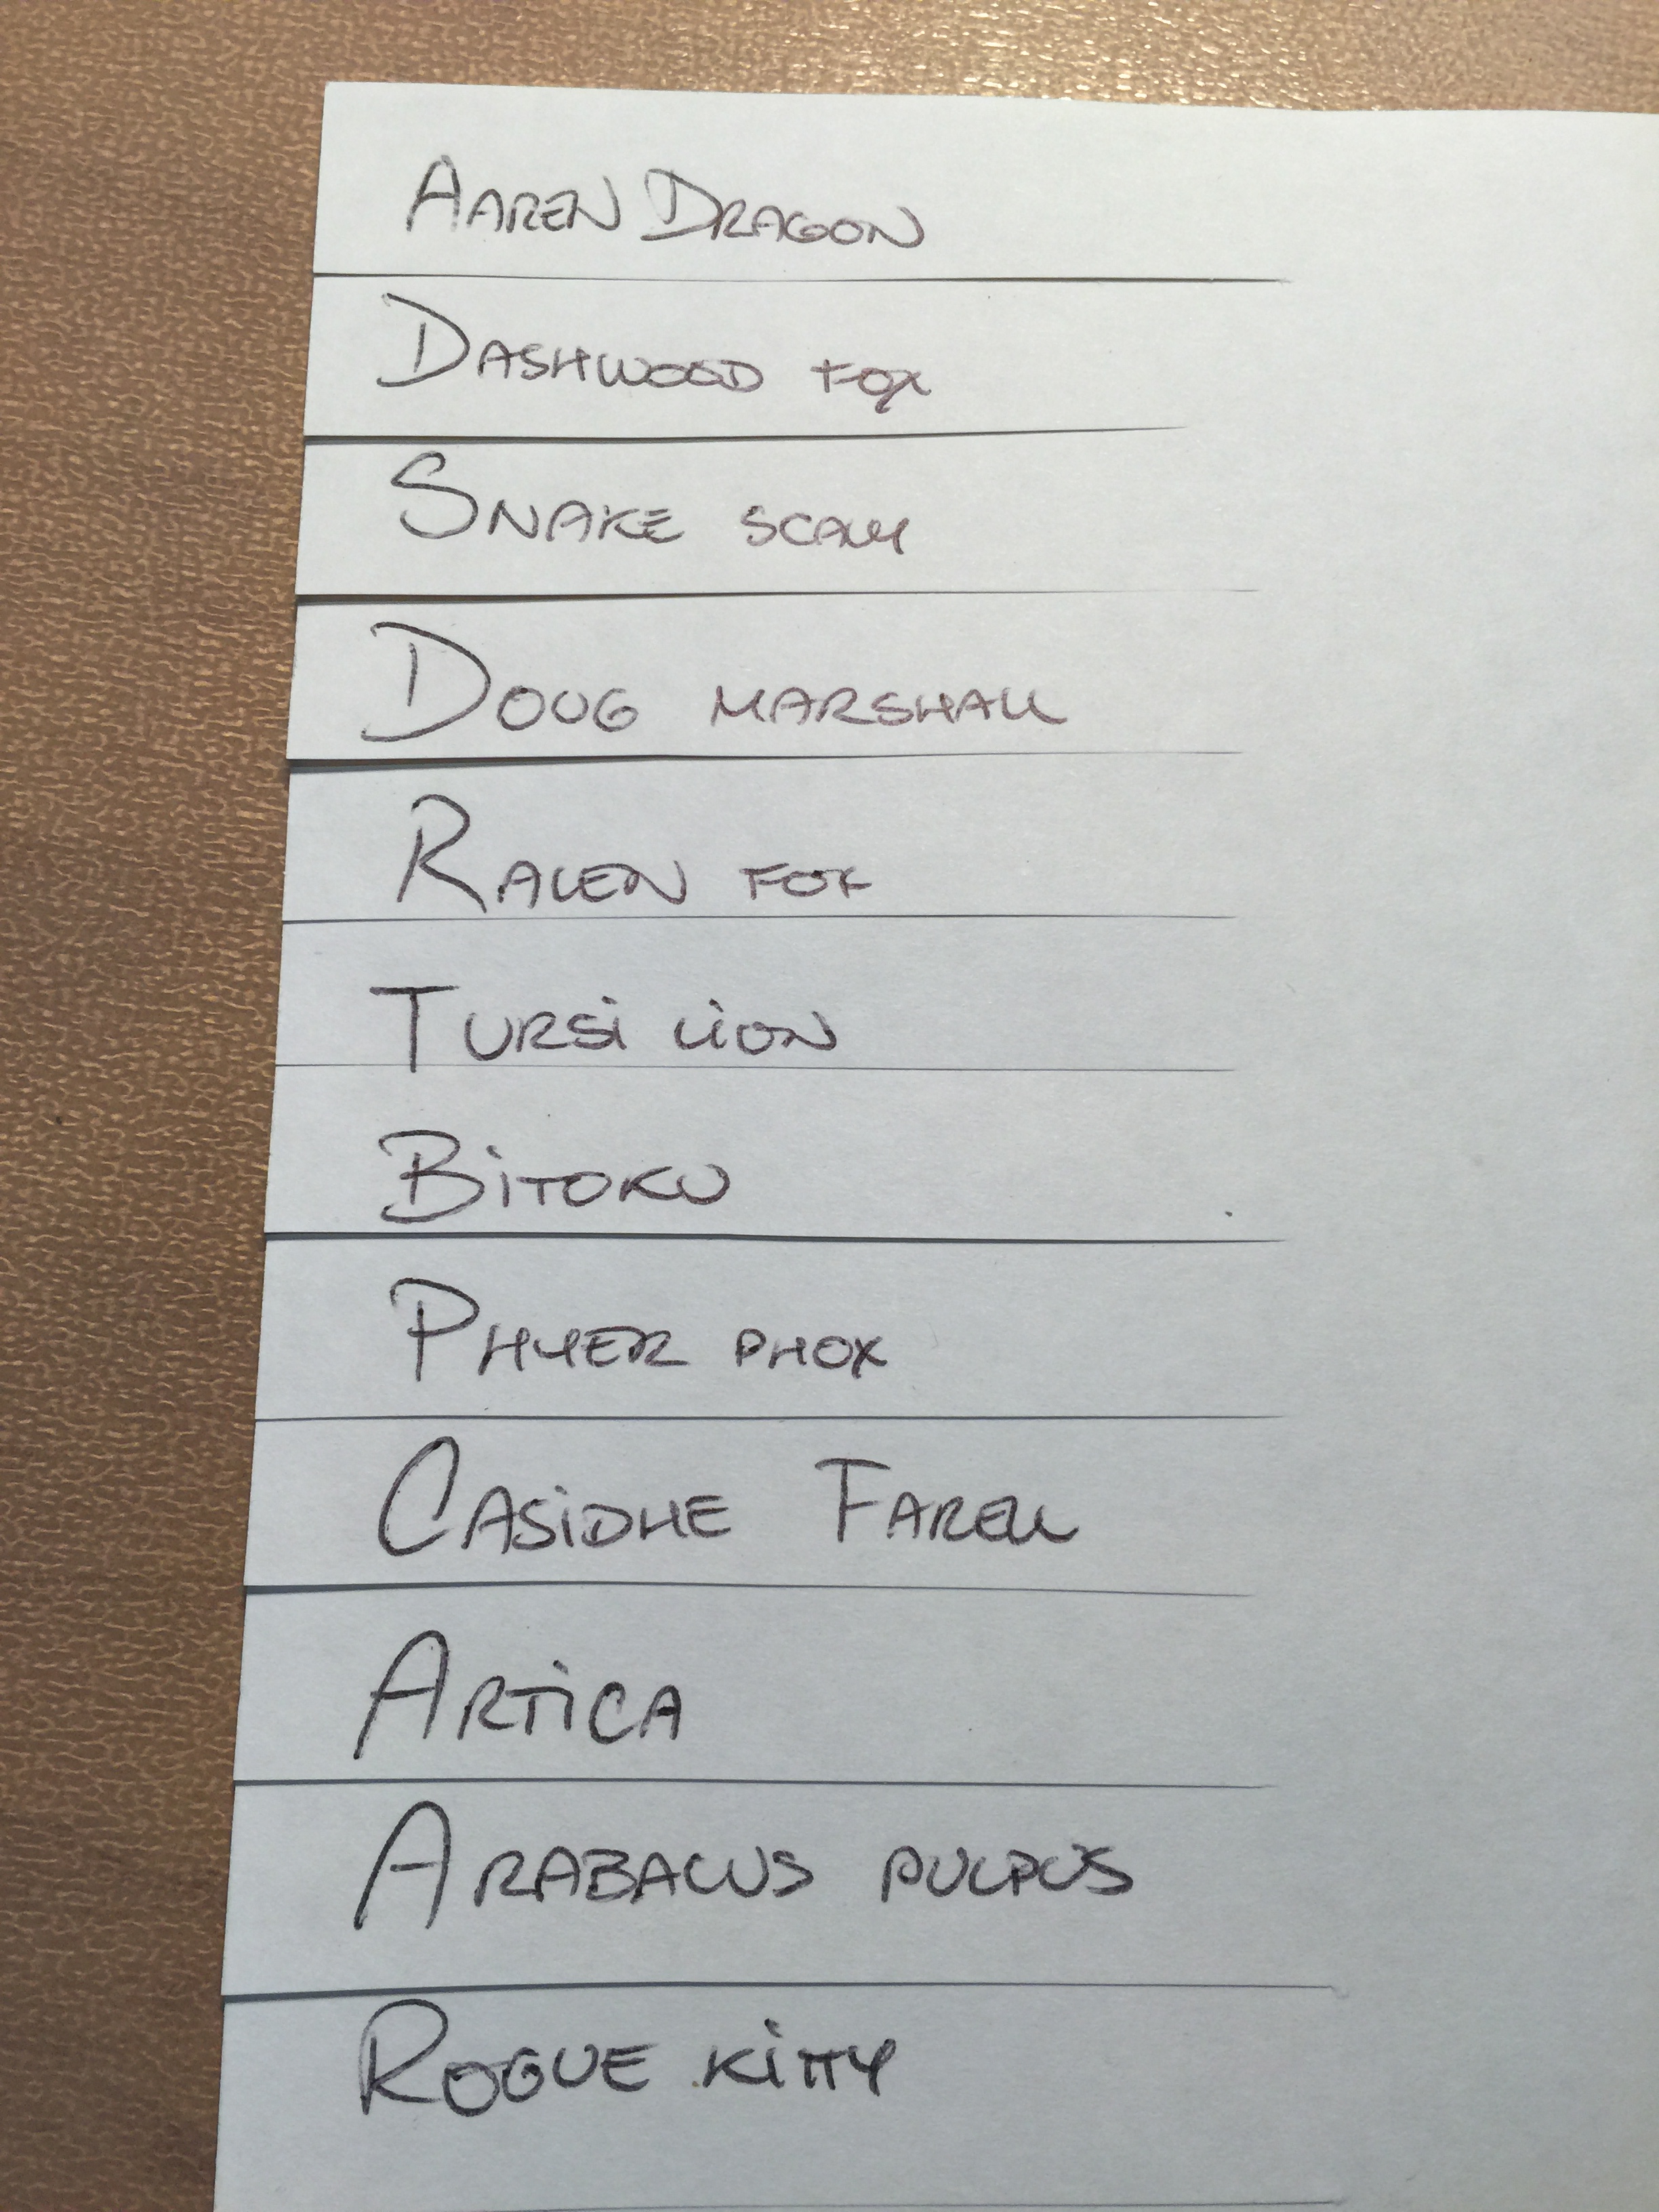 AAREN DRAGON
DASHWOOD FOX
SNAKE SCALY
DOUG MARSHALL
RALEN FOX
TURSi LiON
BiTOKU
PHYER PHOX
CASiDHE FARELL
ARTiCA
ARABALUS PULPUS
ROGUE KiTTY